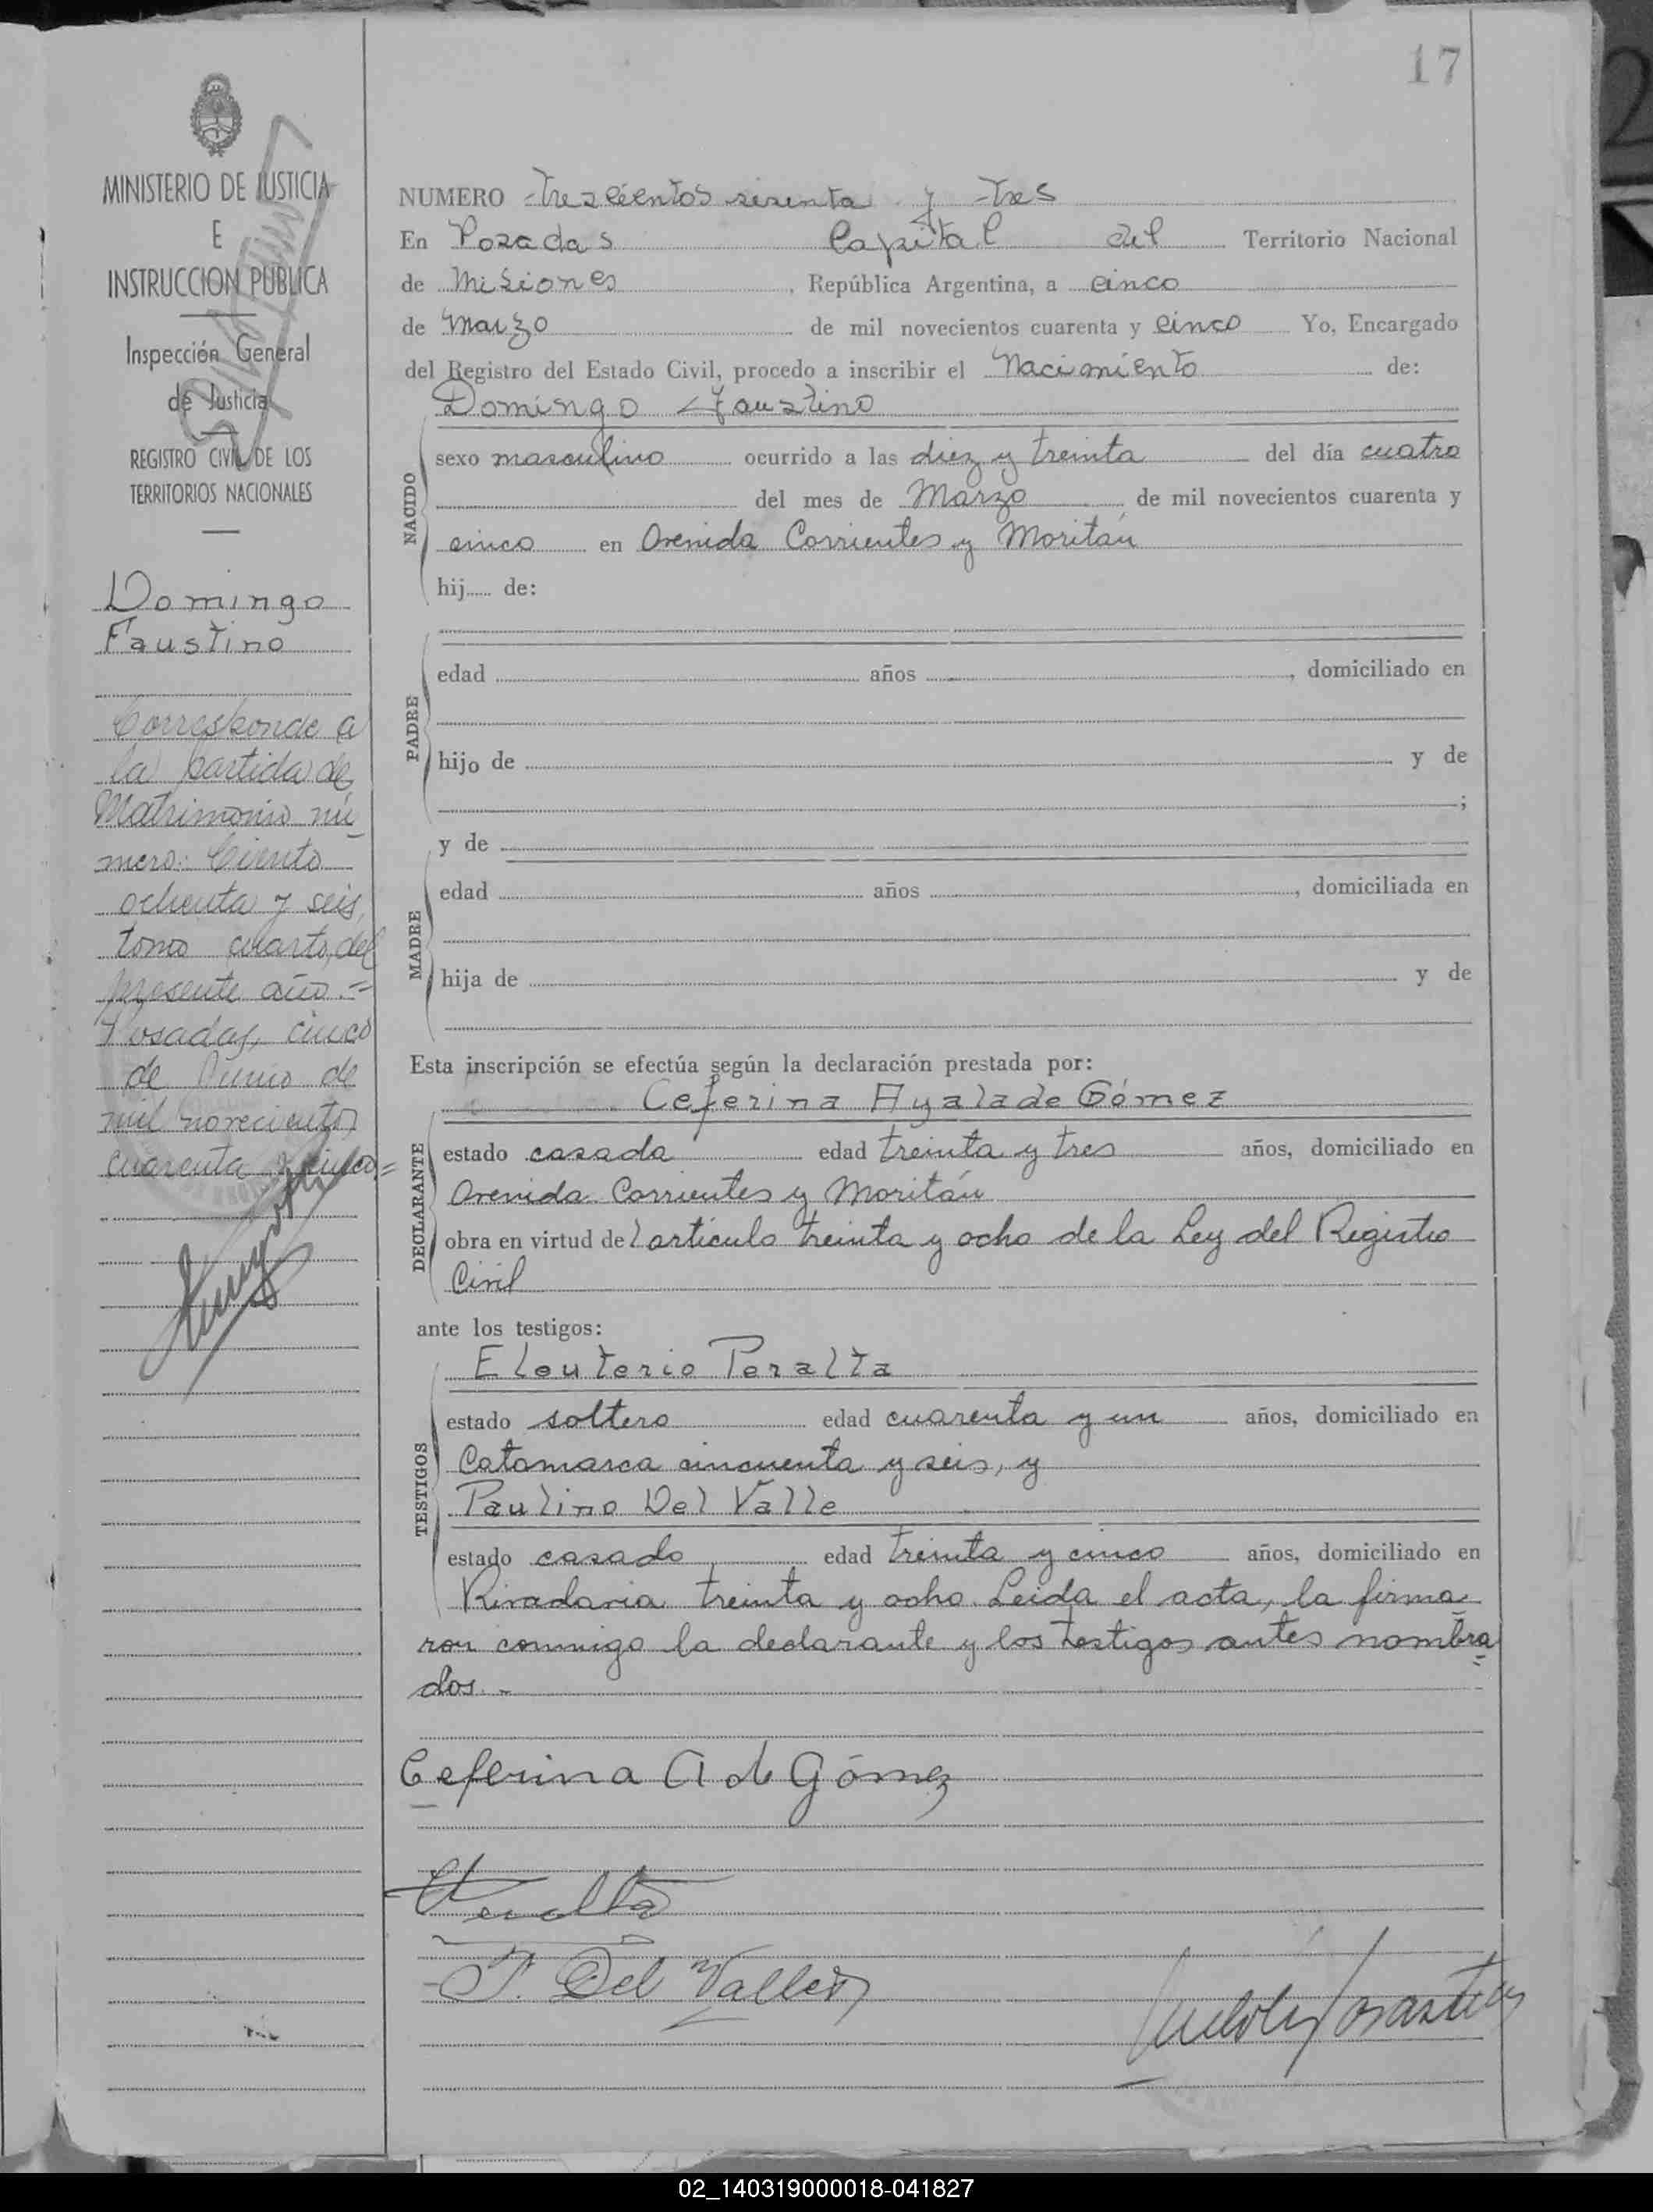 17
MINISTERIO DE JUSTICIA
E
INSTRUCCION PUBLICA
Inspección General
de Justicia
REGISTRO CIVIL DE LOS
TERRITORIOS NACIONALES
Domingo
Faustino
Corresponde a
la partida de
Matrimonio nú
mero: Ciento
ochenta y seis,
tomo cuarto, del
presente año.=
Posadas, cinco
de Junio de
mil novecientos
cuarenta y cinco=
NUMERO trescientos sesenta y tres
En Posadas Capital del Territorio Nacional
de Misiones, República Argentina, a cinco
de Marzo de mil novecientos cuarenta y cinco Yo, Encargado
del Registro del Estado Civil, procedo a inscribir el Nacimiento de:
Domingo Faustino
NACIDO
sexo masculino ocurrido a las diez y treinta del día cuatro
del mes de Marzo de mil novecientos cuarenta y
cinco en Avenida Corrientes y Moritán
hij..... de:
PADRE
edad años , domiciliado en
hijo de y de
;
y de
MADRE
edad años , domiciliada en
hija de y de
Esta inscripción se efectúa según la declaración prestada por:
Ceferina Ayala de Gómez
DECLARANTE
estado casada edad treinta y tres años, domiciliado en
Avenida Corrientes y Moritán
obra en virtud del artículo treinta y ocho de la Ley del Registro
Civil
ante los testigos:
Eleuterio Peralta
TESTIGOS
estado soltero edad cuarenta y un años, domiciliado en
Catamarca cincuenta y seis, y
Paulino Del Valle
estado casado, edad treinta y cinco años, domiciliado en
Rivadavia treinta y ocho. Leida el acta, la firma
ron conmigo la declarante y los testigos antes nombra=
dos.-
Ceferina A de Gómez
Peralta
P. Del Valle
02_140319000018-041827